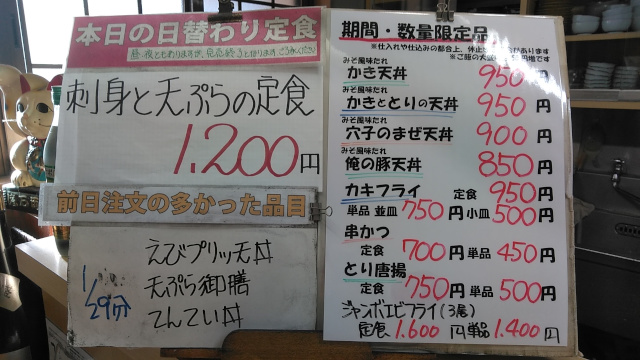 本日の日替わり定食
刺身と天ぷらの定食
1,200円
前日注文の多かった品目
1/29分
えびプリッ天丼
天ぷら御膳
てんてい丼
期間・数量限定品
※仕入れや仕込みの都合上、休止
があります
※ご飯の大盛
増です
みそ風味たれ
かき天丼 950円
みそ風味たれ
かきととりの天丼 950円
みそ風味たれ
穴子のまぜ天丼 900円
みそ風味たれ
俺の豚天丼 850円
カキフライ 定食 950円
単品 並皿 750円 小皿 500円
串かつ
定食 700円 単品 450円
とり唐揚
定食 750円 単品 500円
ジャンボエビフライ(3尾)
定食 1.600円 単品 1.400円